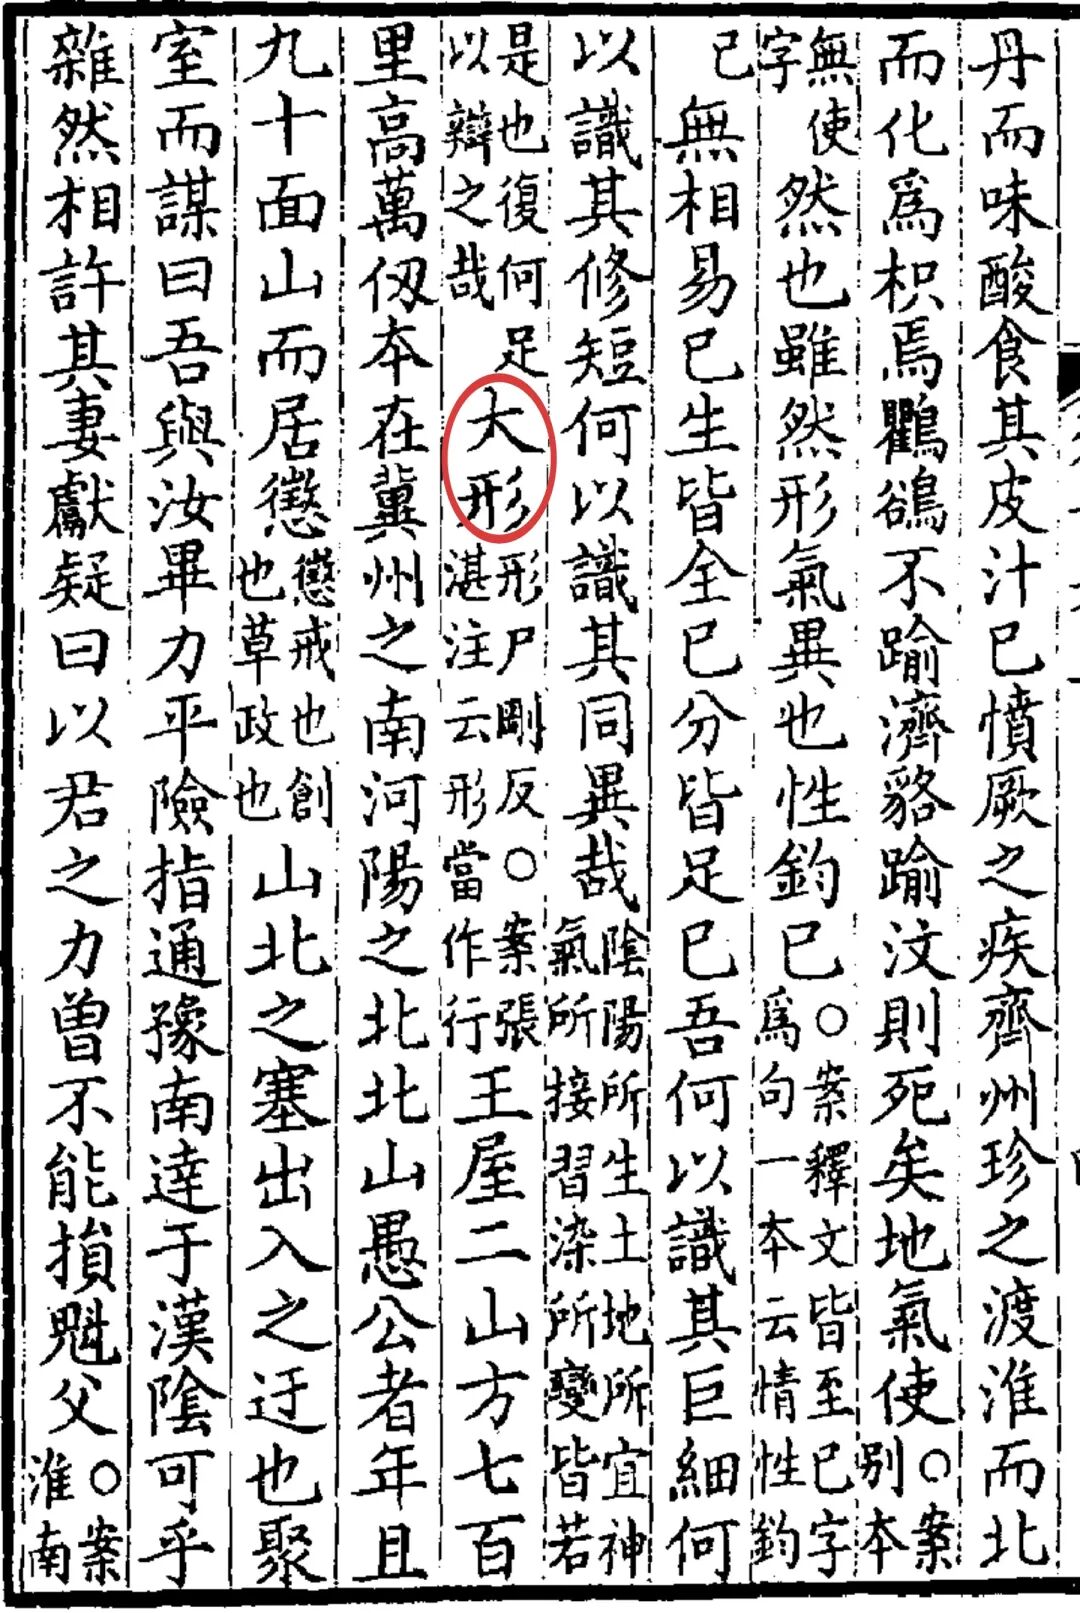 丹而味酸食其皮汁已憤厥之疾齊州珍之渡淮而北
而化爲枳焉鸜鵒不踰濟貉踰汶則死矣地氣使○案別本
無使字然也雖然形氣異也性鈞已○案釋文皆至已字爲句一本云情性鈞
已無相易已生皆全已分皆足已吾何以識其巨細何
以識其修短何以識其同異哉陰陽所生土地所宜神氣所接習染所變皆若
是也復何足以辯之哉大形形尸剛反○案張湛注云形當作行王屋二山方七百
里高萬仞本在冀州之南河陽之北北山愚公者年且
九十面山而居懲懲戒也創也草政也山北之塞出入之迂也聚
室而謀曰吾與汝畢力平險指通豫南達于漢陰可乎
雜然相許其妻獻疑曰以君之力曾不能損魁父○案淮南